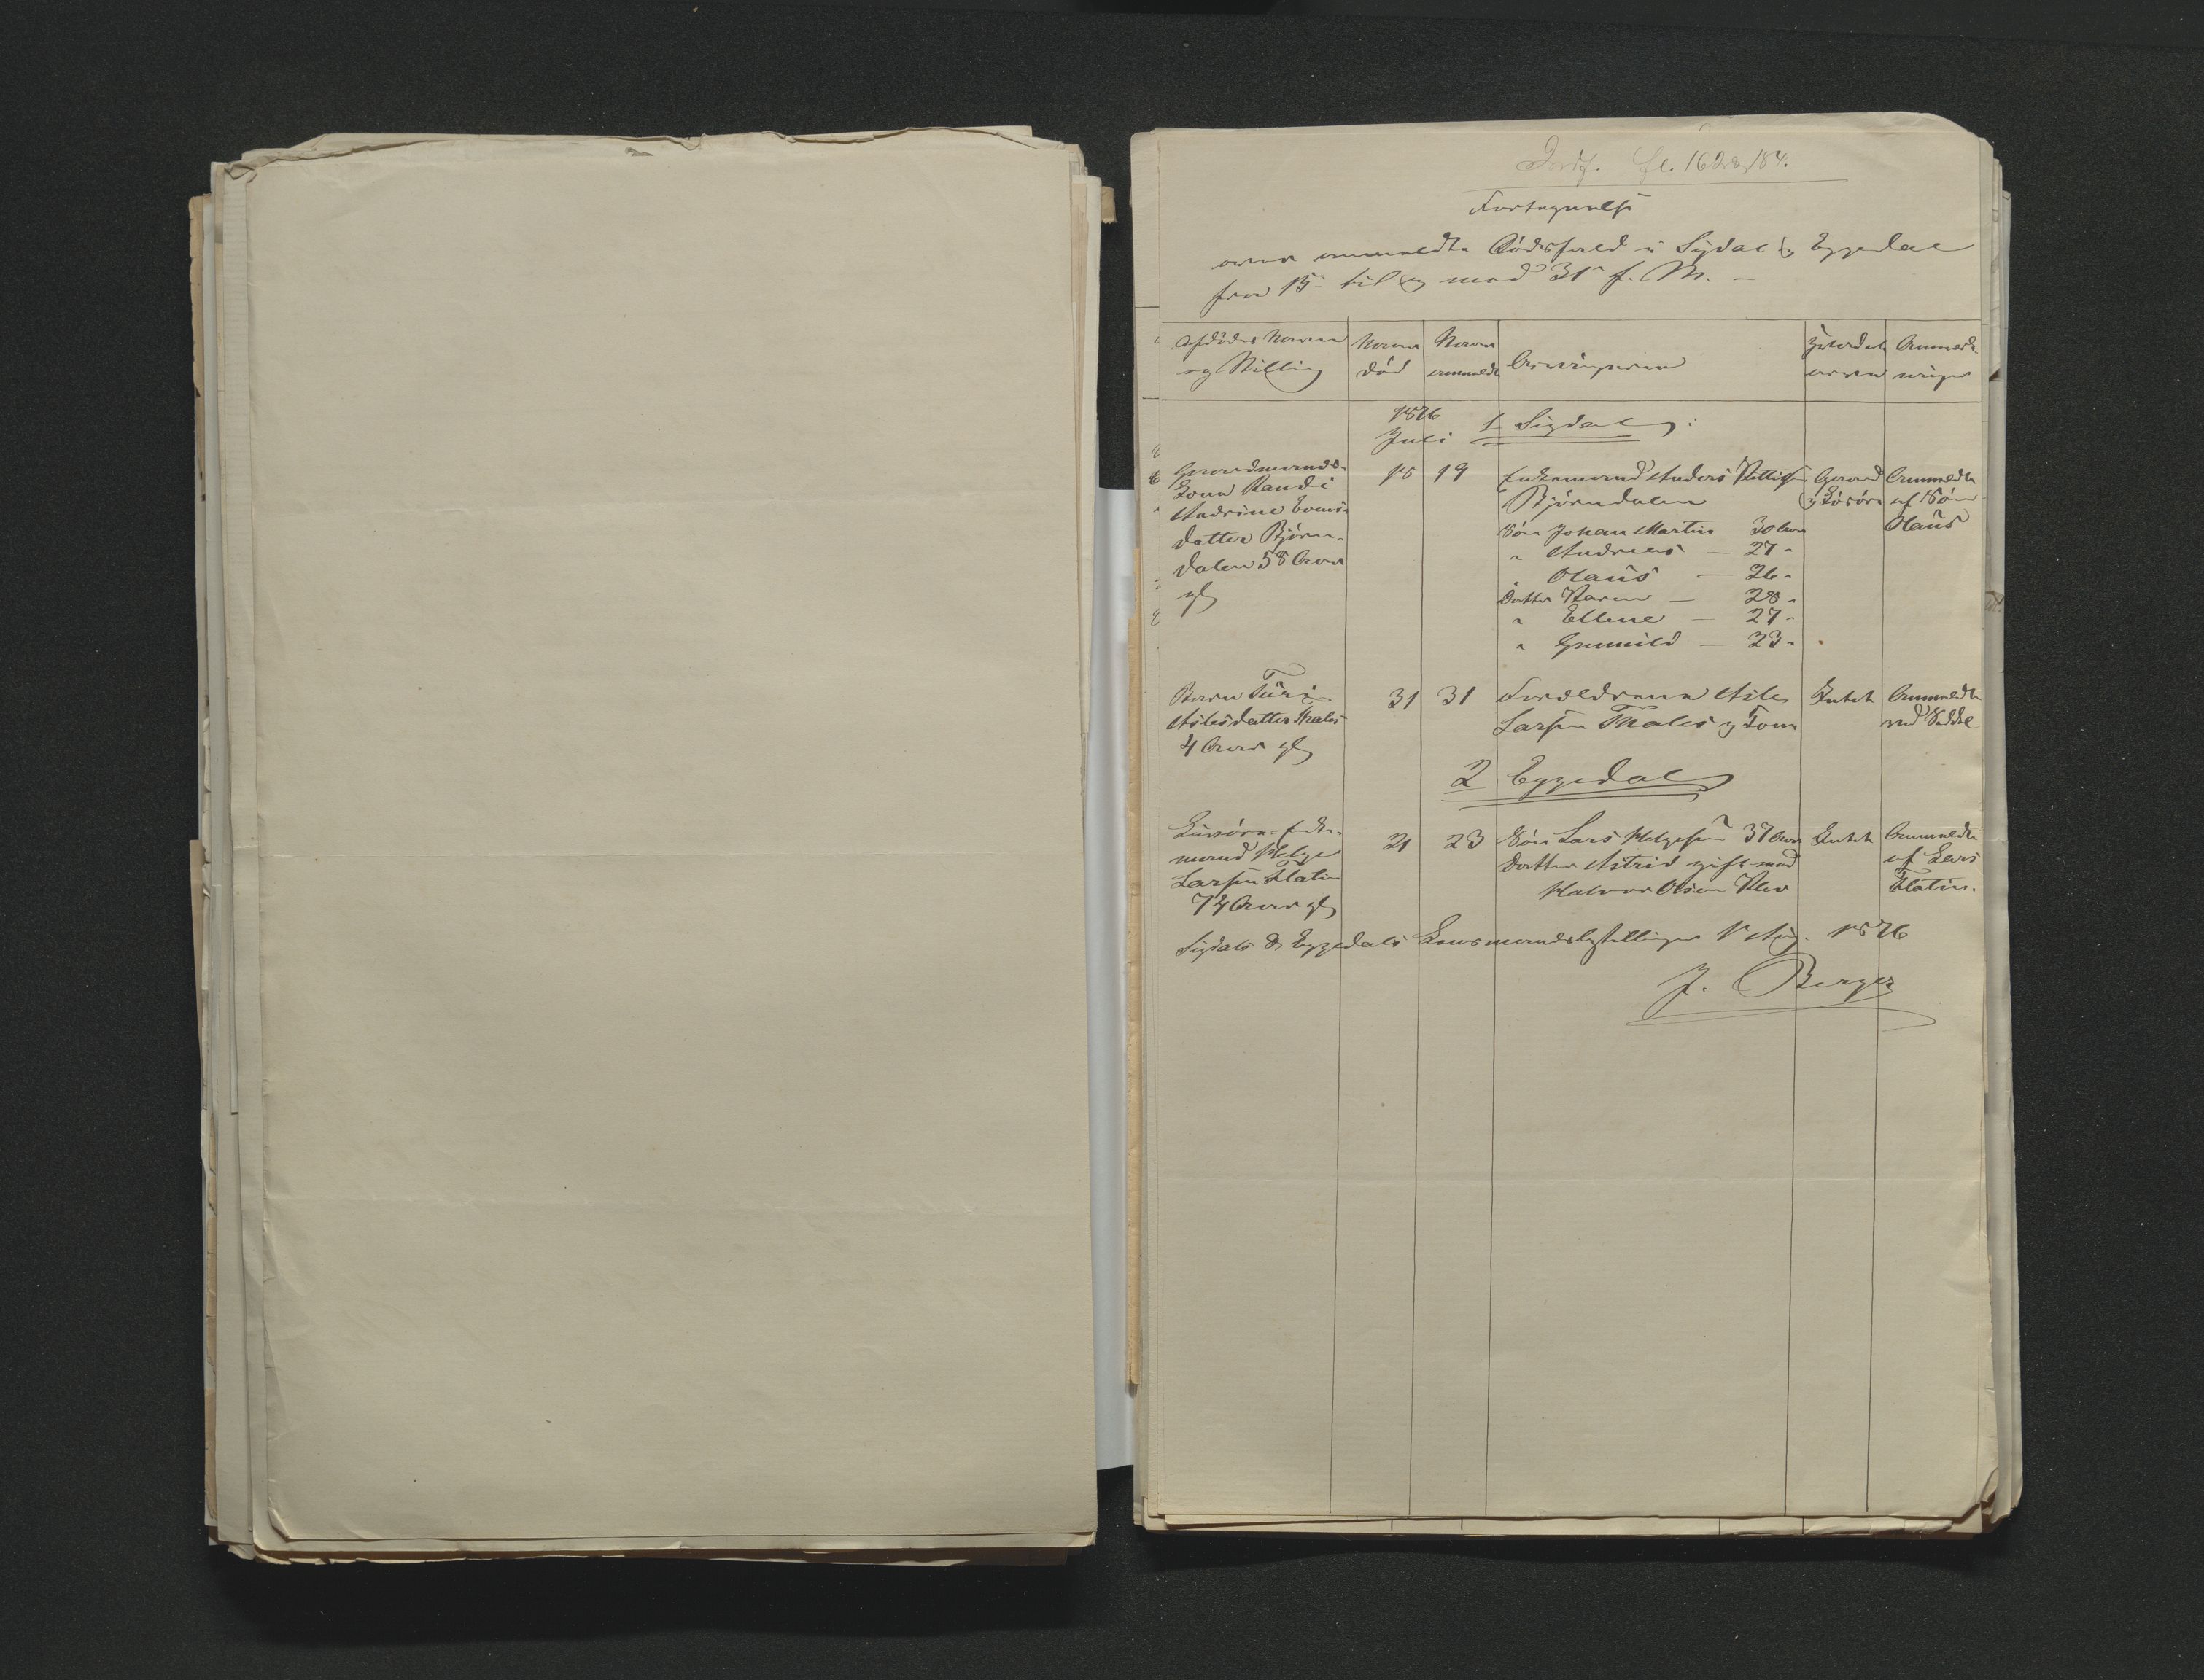 Fortegnelse
over anmeldte Dödsfald i Sigdal & Eggedal
fra 15 til og med 31 f. M. -
Afdödes Navn
og Stilling
Naar
död
Naar
anmeldt
Arvingerne
Anmeld-
1876
Juli
1 Sigdal:
Gaardmands-
kone Randi
Andrine
datter Björn-
dalen 58 Aar
gl
15 19 Enkemand Anders
Björndalen
Sön Johan Martin 30 Aar
" Andreas — 27 "
" Olaus — 26 "
Datter Karen — 28 "
" Ellene — 27 "
" Gunnild — 23 "
Gaard
& Lösöre
Anmeldt
af Sön
Olaus
Barn Turi
Aslesdatter
4 Aar gl
31 31 Forældrene Asle
Larsen og Kone
Intet
Anmeldt
ved Seddel
2 Eggedal
mand Helge
Larsen Flatin
74 Aar gl
21 23 Sön Lars Helgesen 37 Aar
Datter Astrid gift med
Halvor Olsen
Intet
Anmeldt
af Lars
Flatin.
Sigdals & Eggedals Lensmandsbestilling 1 Aug. 1876
J. Berger